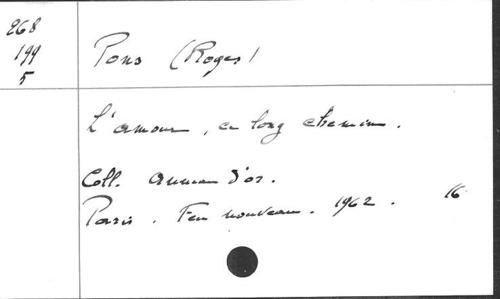 268
199
5
Pons (Roger)
L'amour, ce long chemin.
Coll. anneau d'or.
Paris. Feu nouveau. 1962. 16